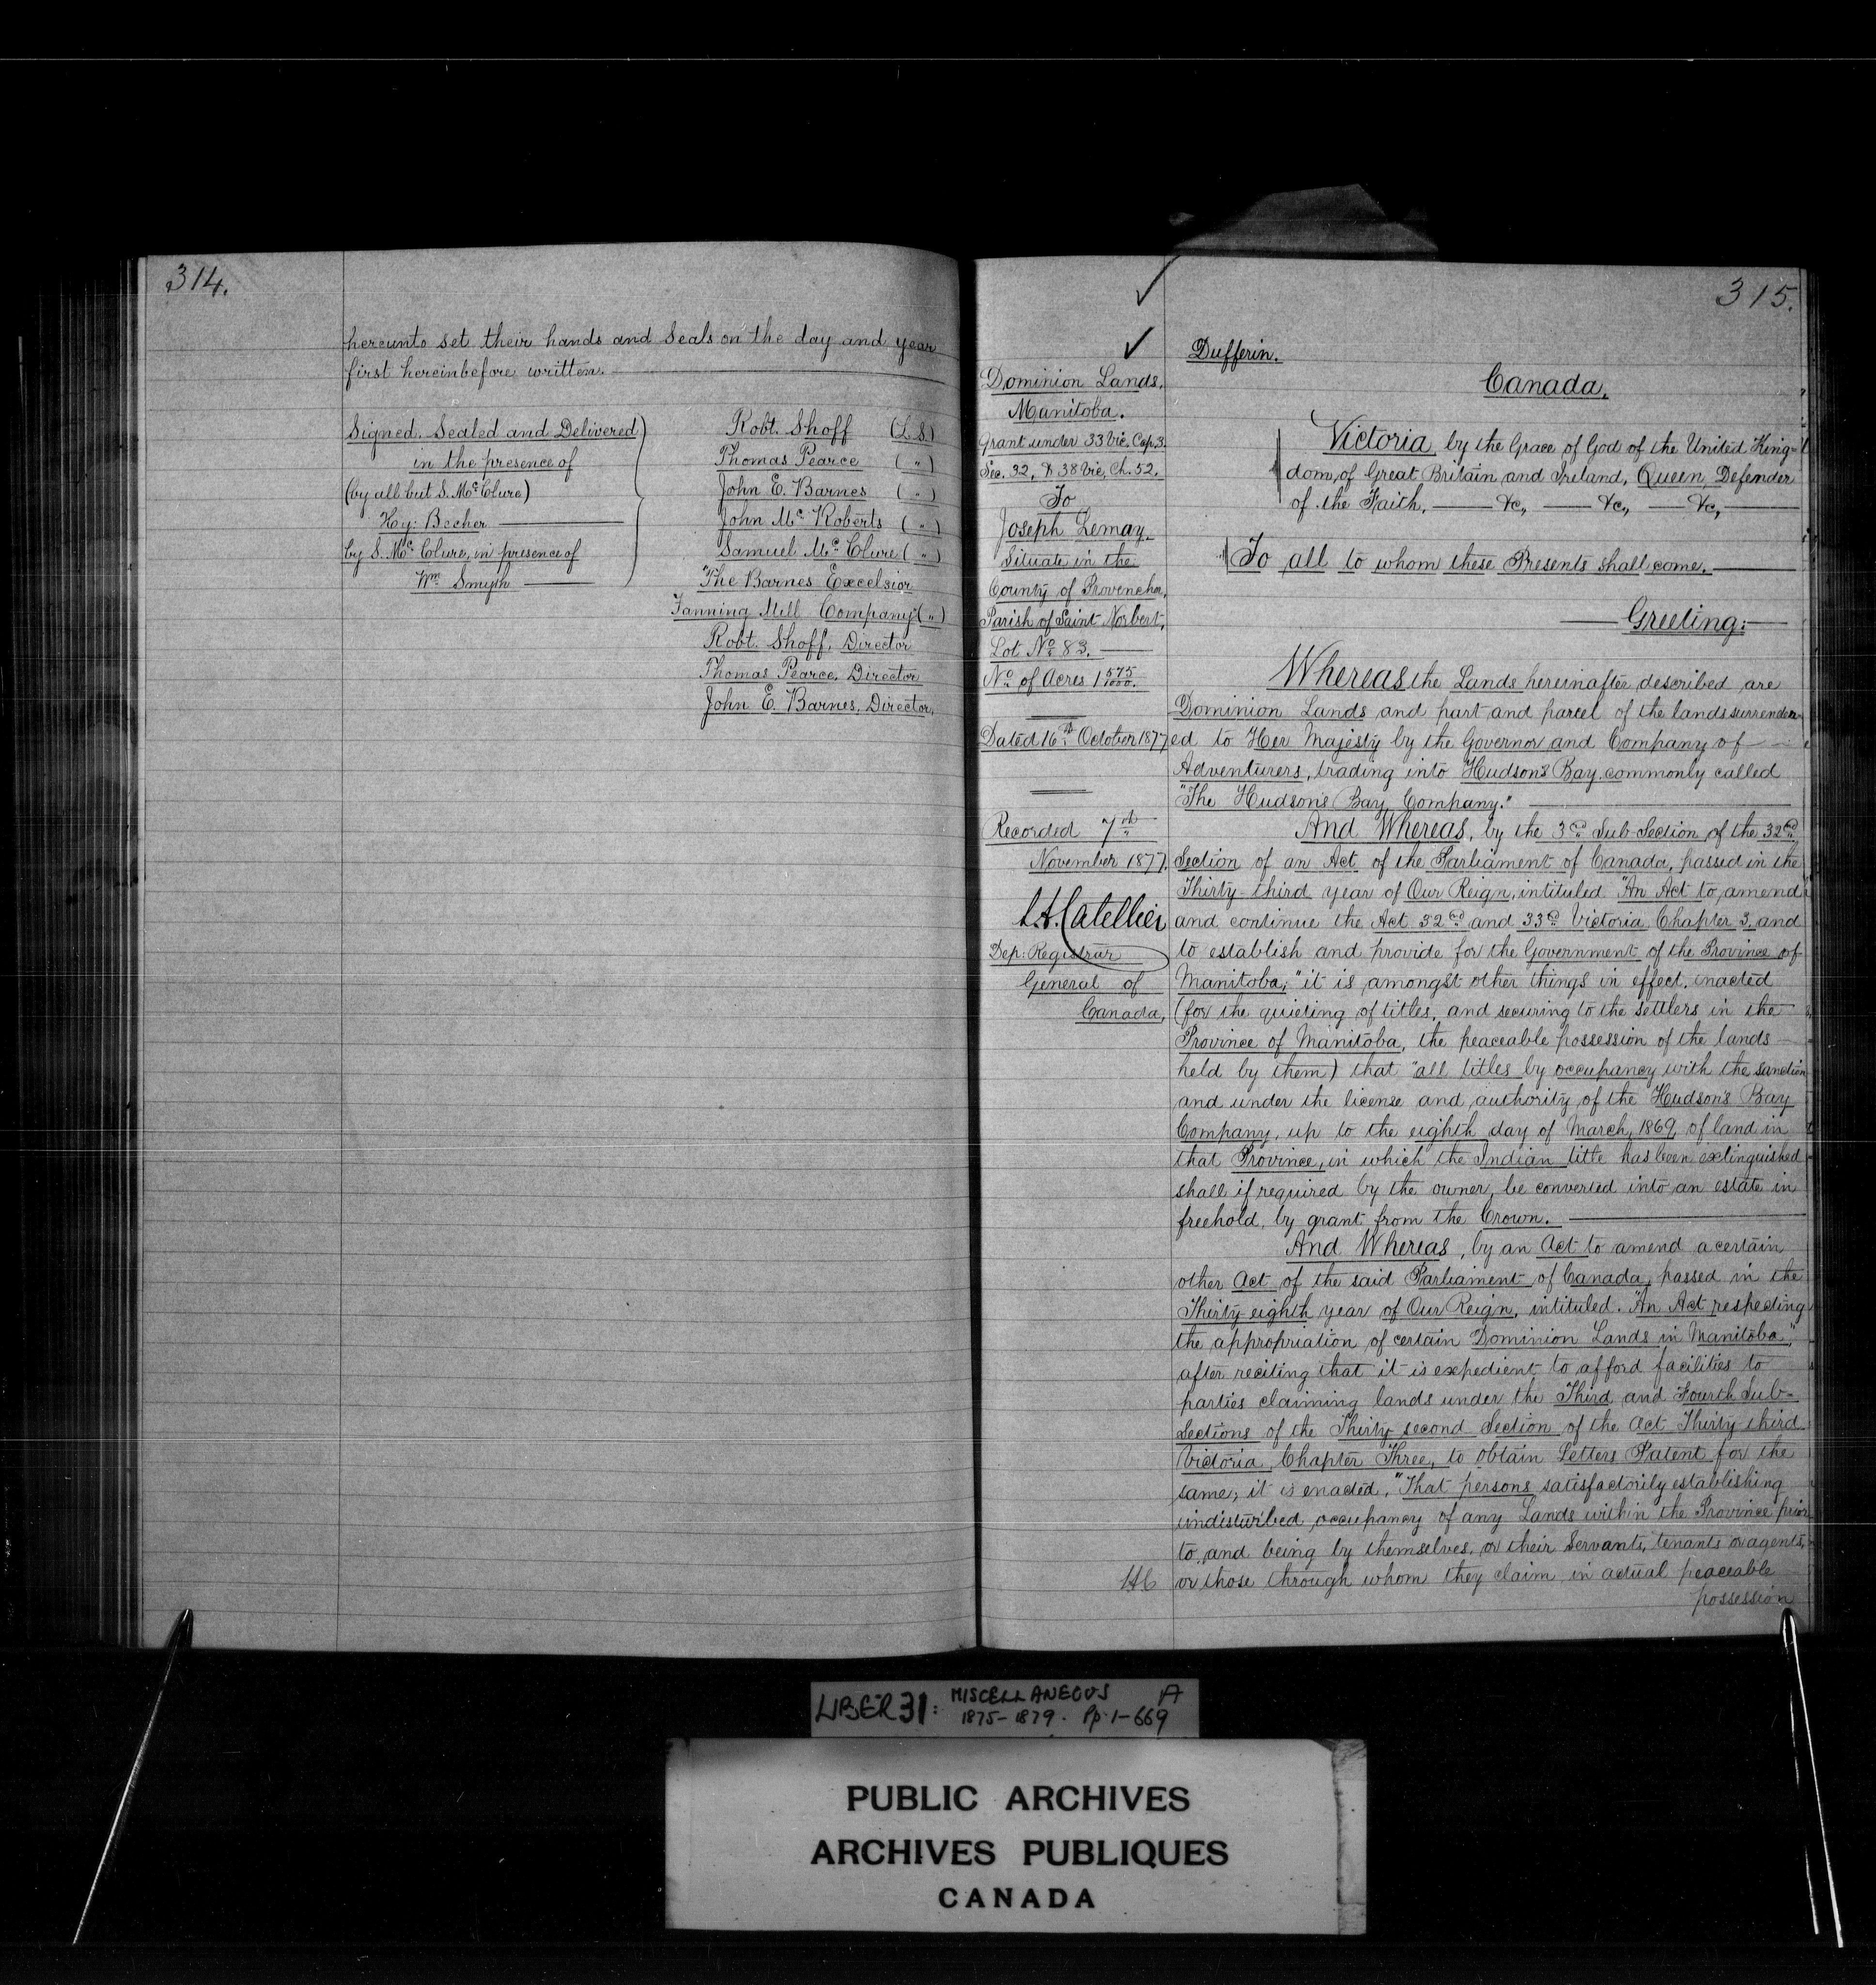 314.
hereunto set their hands and Seals on the day and year
first hereinbefore written.
Signed. Sealed and Delivered
in the presence of
(by all but S. Mc Clure)
Hy: Becher
by S. Mc Clure, in presence of
Wm Smyth
Robt. Shoff (L.S.)
Thomas Pearce (")
John E. Barnes (")
John Mc Roberts (")
Samuel Mc Clure (")
"The Barnes Excelsior
Fanning Mill Company" (")
Robt. Shoff, Director
Thomas Pearce, Director
John E. Barnes, Director.
315.
Dominion Lands.
Manitoba.
Grant under 33 Vic. Cap. 3.
Sec. 32, & 38 Vic, Ch. 52.
To
Joseph Lemay.
Situate in the
County of Provencher,
Parish of Saint Norbert,
Lot No 83.
No of Acres 1 575/1000.
Dated 16th October 1877
Recorded 7th
November 1877.
L.A. Catellier
Dep: Registrar
General of
Canada,
Dufferin.
Canada.
Victoria, by the Grace of God of the United King-
dom, of Great Britain and Ireland, Queen, Defender
of the Faith, &c, &c, &c,
To all to whom these Presents shall come.
Greeting:
Whereas the Lands hereinafter described are
Dominion Lands and part and parcel of the lands surrender-
ed to Her Majesty by the Governor and Company of
Adventurers, trading into Hudson's Bay commonly called
"The Hudson's Bay Company."
And Whereas, by the 3rd Sub-Section of the 32nd
Section of an Act of the Parliament of Canada, passed in the
Thirty-third year of Our Reign, intituled "An Act to amend
and continue the Act 32nd and 33rd Victoria Chapter 3, and
to establish and provide for the Government of the Province of
Manitoba," it is amongst other things in effect, enacted
(for the quieting of titles, and securing to the settlers in the
Province of Manitoba, the peaceable possession of the lands
held by them) that "all titles by occupancy with the sanction
and under the license and authority of the Hudson's Bay
Company, up to the eighth day of March, 1869, of land in
that Province, in which the Indian title has been extinguished
shall if required by the owner, be converted into an estate in
freehold, by grant from the Crown.
And Whereas, by an Act to amend a certain
other Act of the said Parliament of Canada, passed in the
Thirty eighth year of Our Reign, intituled. "An Act respecting
the appropriation of certain Dominion Lands in Manitoba,"
after reciting that it is expedient to afford facilities to
parties claiming lands under the Third and Fourth Sub-
Sections of the Thirty second Section of the Act Thirty third
Victoria, Chapter Three, to obtain Letters Patent for the
same; it is enacted, "That persons satisfactorily establishing
undisturbed occupancy of any Lands within the Province prior
to, and being by themselves, or their Servants, tenants or agents,
or those through whom they claim in actual peaceable
possession
LIBER 31: MISCELLANEOUS A
1875-1879. Pp. 1-669
PUBLIC ARCHIVES
ARCHIVES PUBLIQUES
CANADA